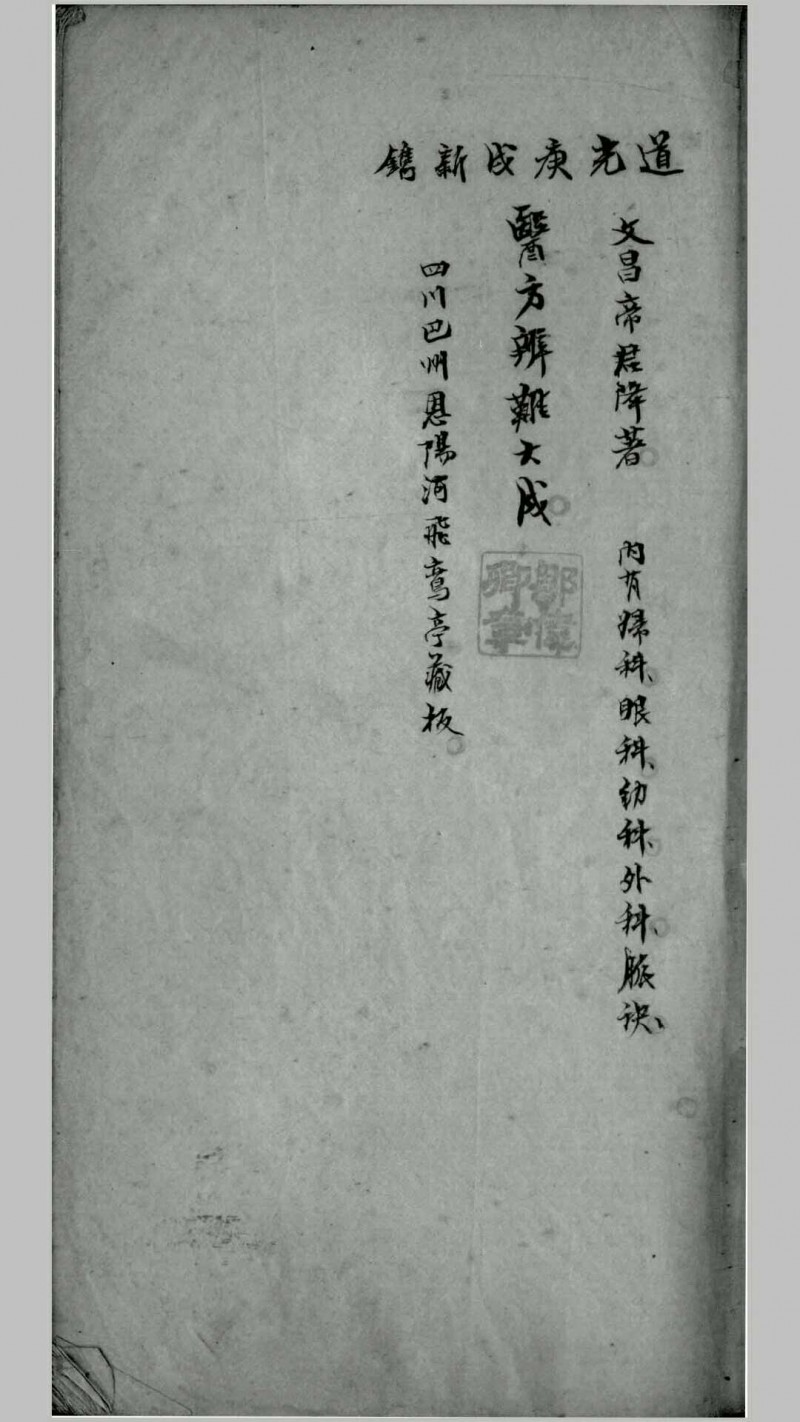 道光庚戌新鐫
文昌帝君降著 內有婦科、眼科、幼科、外科、脈訣、
醫方辨難大成
鄒儒卿章
四川巴州恩陽河飛鸞亭藏板